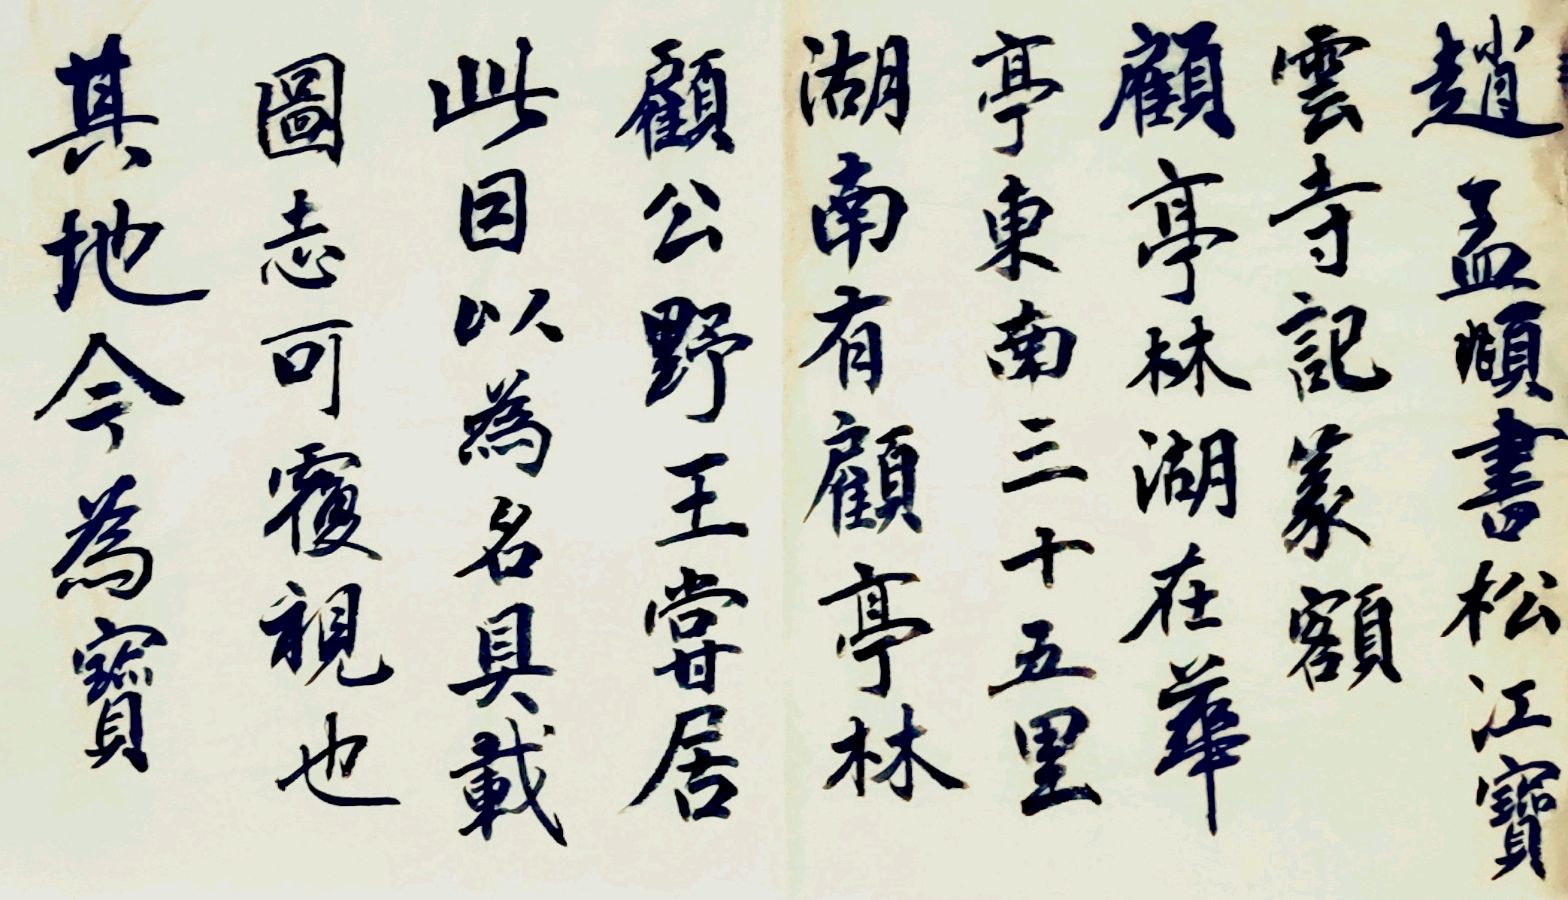 趙孟頫書松江寶
雲寺記篆額
顧亭林湖在華
亭東南三十五里
湖南有顧亭林
顧公野王甞居
此因以為名具載
圖志可覆視也
其地今為寶